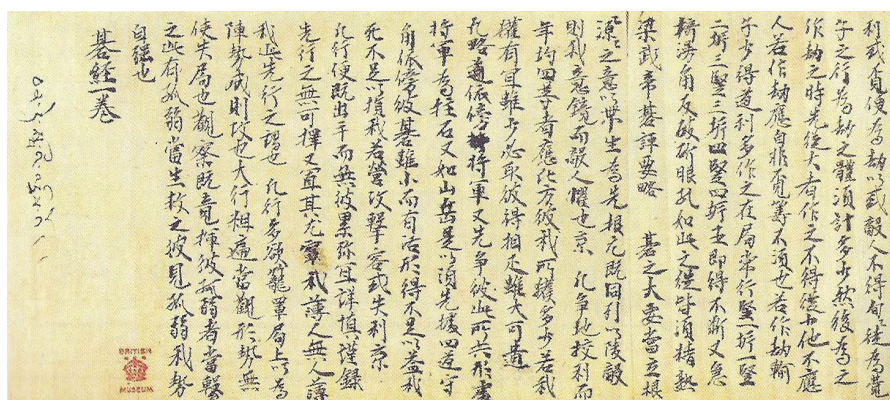 利或不覓便為劫以或敵人不得有徒為費
子之行為劫之體須計多少然後為之
作劫之時先從大者作之不得從少他不應
人若作劫應自非不覓籌不須也若作劫輸
子少得道利多作之在局常行竪一拆一竪
二拆三竪三拆四竪四拆五即得不斷又急
角反敵斫眼孔如此之從皆須楷熟
梁武帝碁評要略 碁之大要當立根
源之意以帶生為先根元既固引以陵敵
則我意鏡而敵人懼也 凡爭地校利而
年約四等者應此方彼我所獲多少若我
獲有宜雖少必取彼得相足雖大可遣
凡略道依傍將軍又先爭彼此所共形要
將軍為柱石又如山岳是以須先據四道守
角依傍彼碁雖小而有活形得不足以益我
死不足以損我若營攻擊容或失利
凡行便既出手而無彼累弥宜詳慎謹錄
先行之無可擇又宜其尤寧我薄人無人薄
我此先行之謂也 凡行多欲籠罩局上以為
陣勢成則攻也大行粗遍當觀形勢無
使失局也觀察既竟揮彼孤弱者當擊
之此有孤弱當生救之彼見孤弱我勢
自強也
碁經一卷
BRITISH
MUSEUM